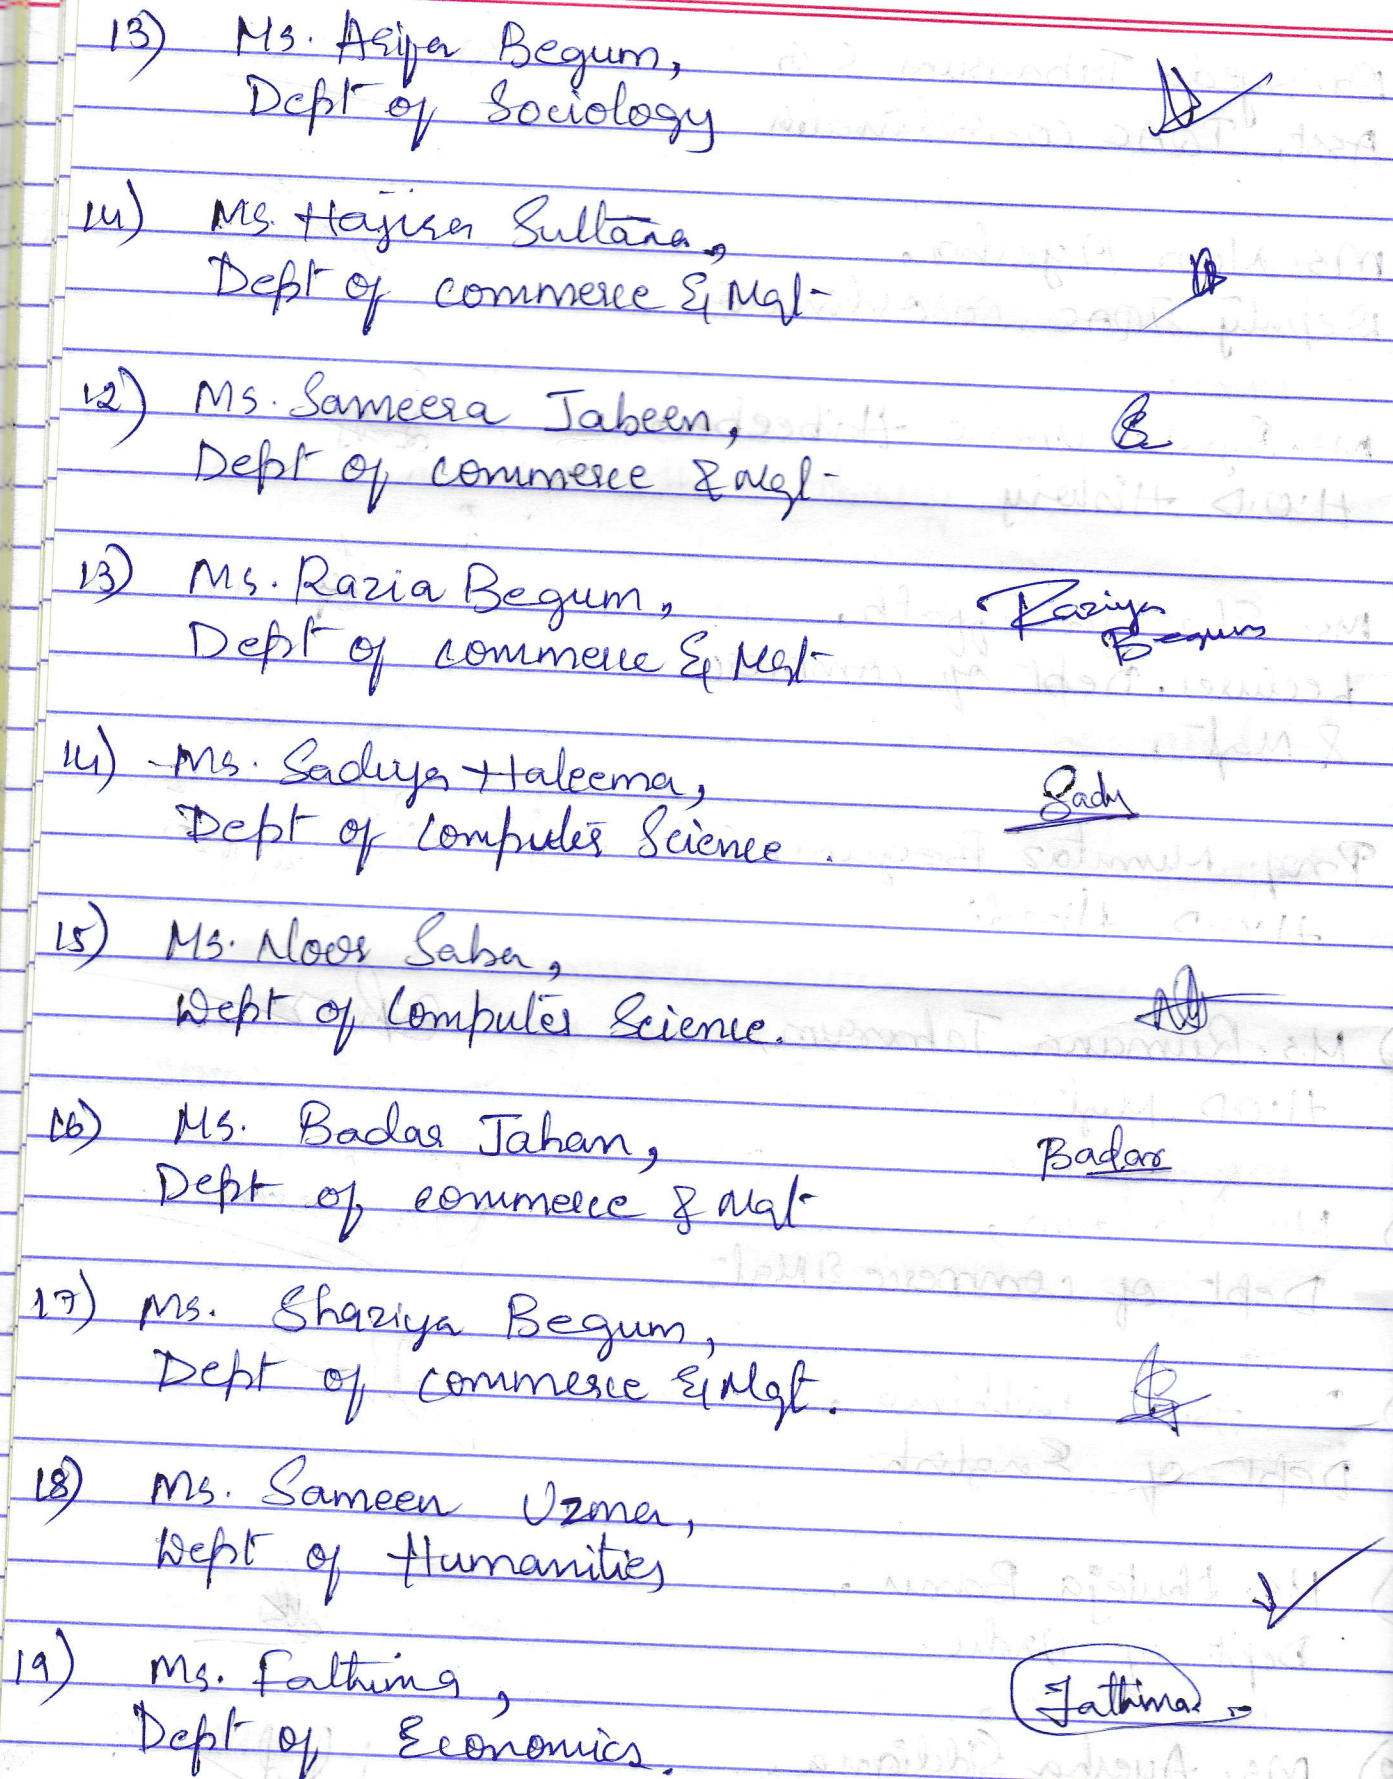 13) Ms. Asifa Begum,
Dept of Sociology
14) Ms. Hajira Sultana,
Dept of commerce & Mgt
12) Ms. Sameera Jabeen,
Dept of commerce & Mgt
13) Ms. Razia Begum,
Raziya
Begum
Dept of commerce & Mgt
14) Ms. Sadiya Haleema,
Sady
Dept of Computer Science.
15) Ms. Noor Saba,
Dept of Computer Science.
16) Ms. Badar Jahan,
Badar
Dept of commerce & Mgt
17) Ms. Shaziya Begum,
Dept of commerce & Mgt.
18) Ms. Sameen Uzma,
Dept of Humanities
19) Ms. Fathima,
Fathima
Dept of Economics.